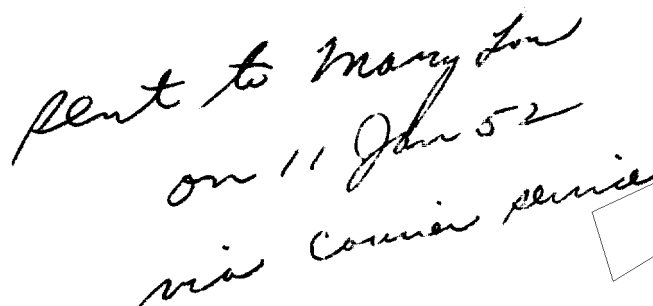 sent to Mary Lou
on 11 Jan 52
via courier service